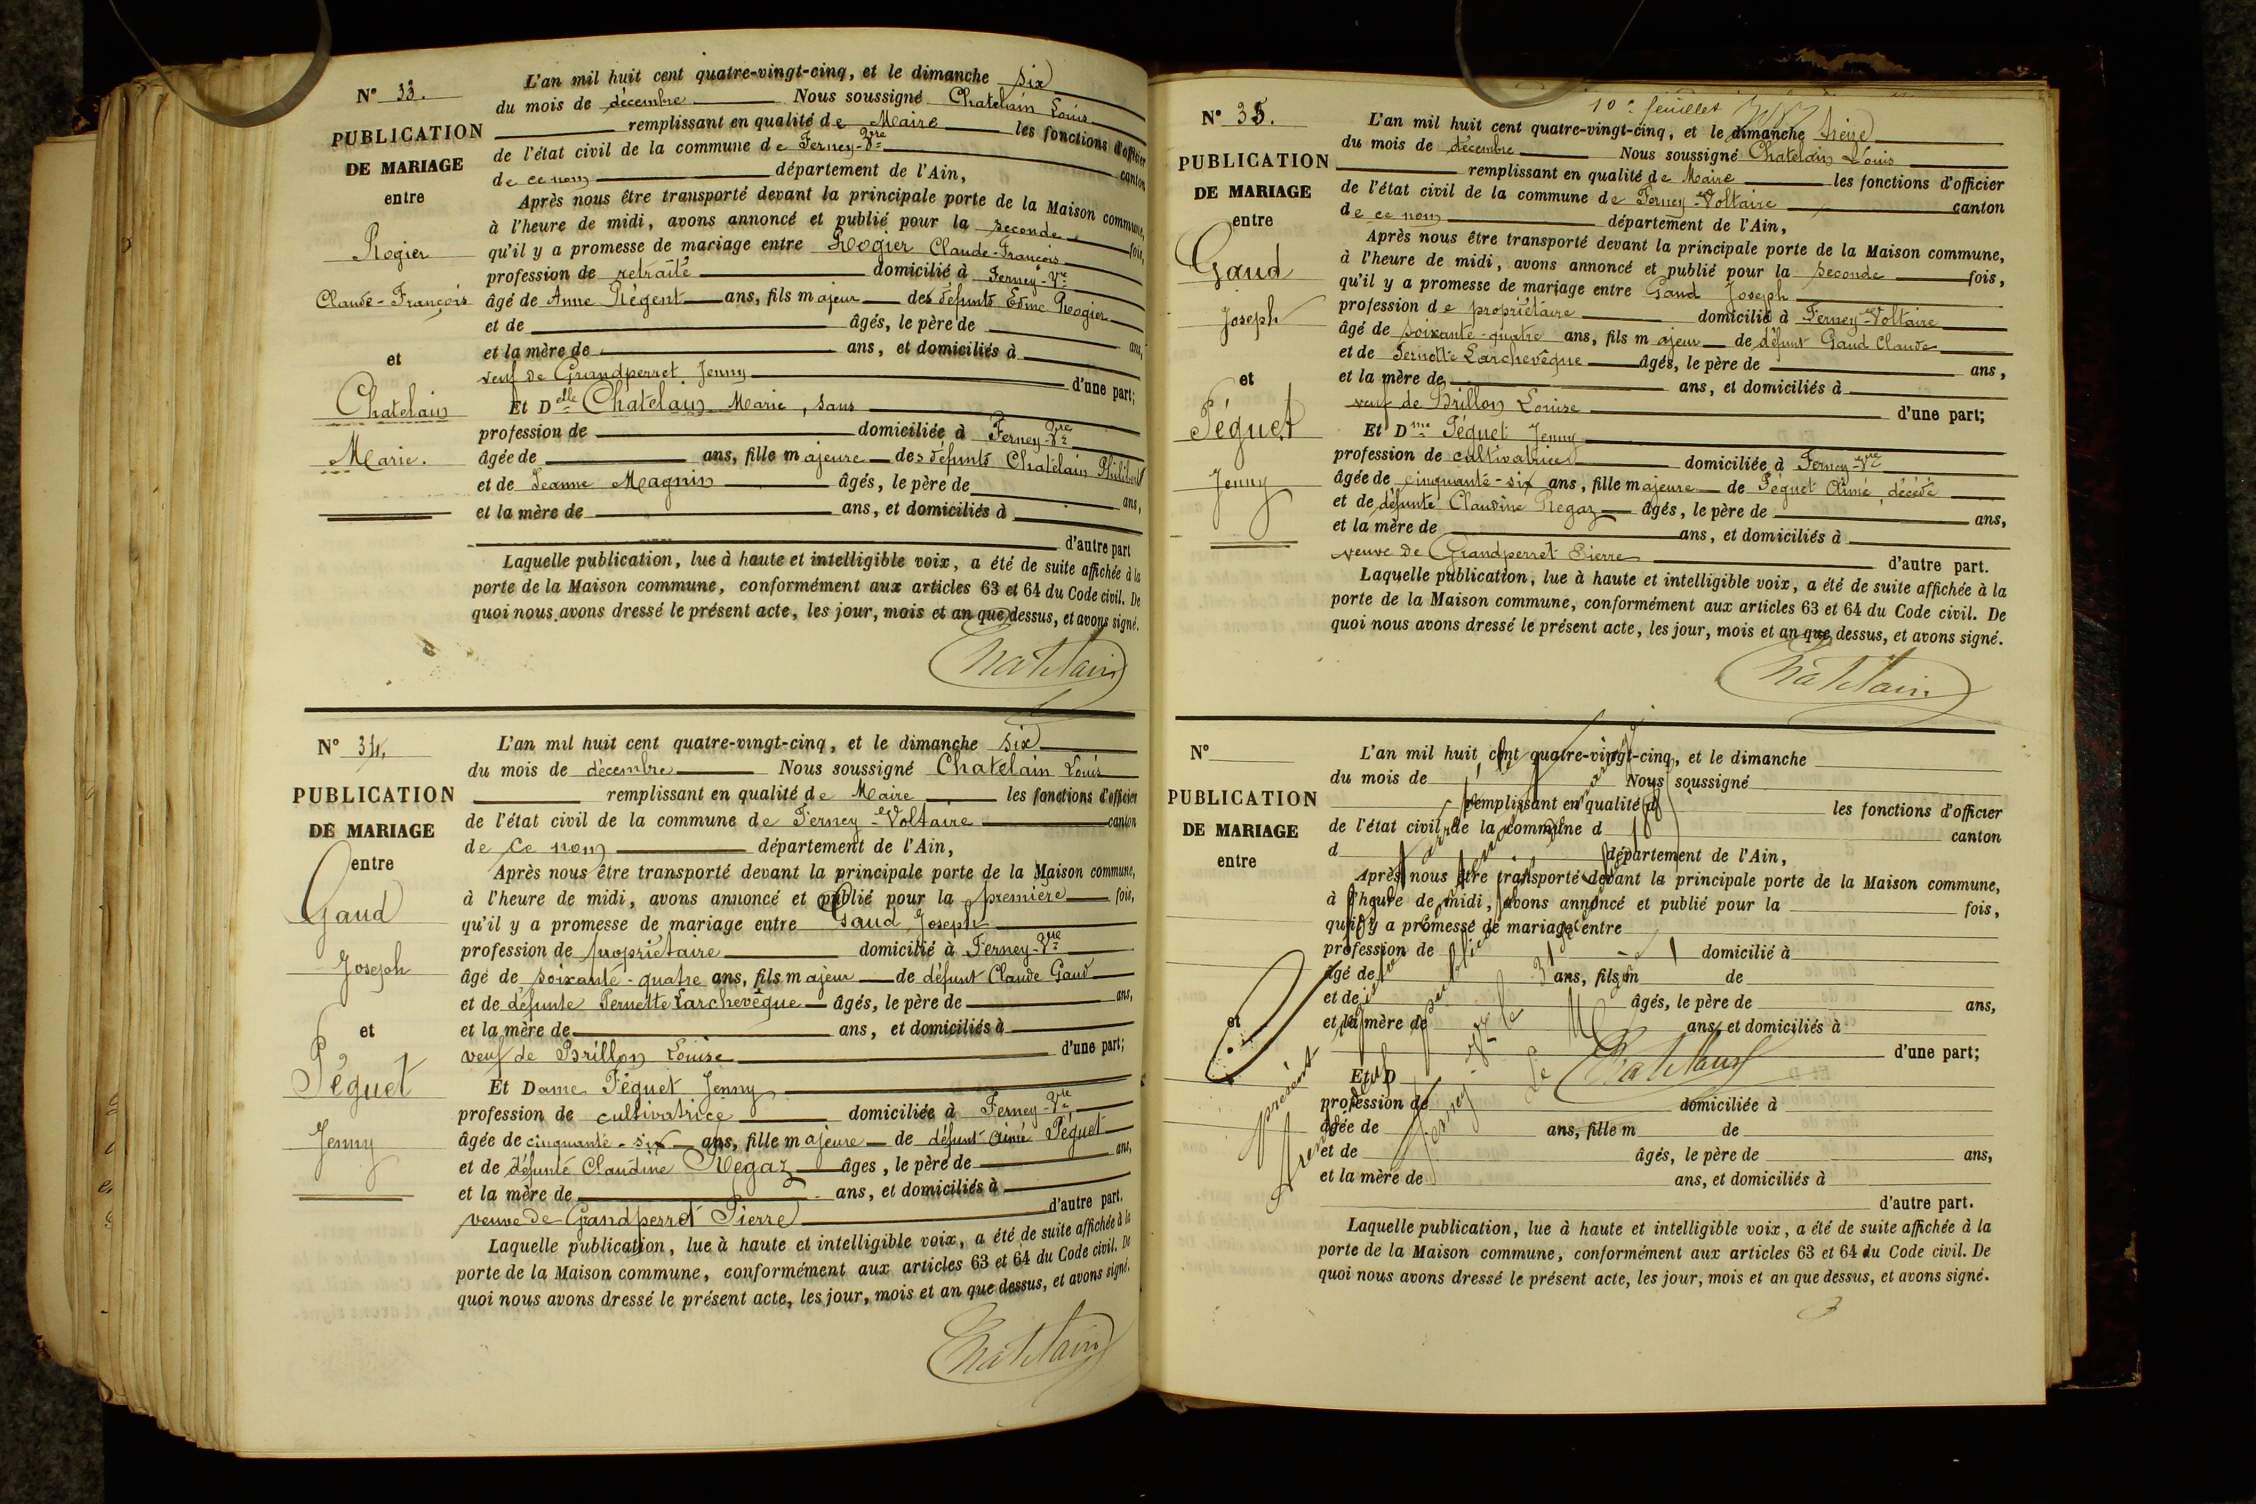 N° 33.
PUBLICATION
DE MARIAGE
entre
Rogier
Claude-François
et
Chatelain
Marie.
L'an mil huit cent quatre-vingt-cinq, et le dimanche six
du mois de décembre Nous soussigné Chatelain Louis
remplissant en qualité de Maire les fonctions d'officier
de l'état civil de la commune de Ferney-Vre canton
de ce nom département de l'Ain,
Après nous être transporté devant la principale porte de la Maison commune,
à l'heure de midi, avons annoncé et publié pour la seconde fois,
qu'il y a promesse de mariage entre Rogier Claude-François
profession de retraité domicilié à Ferney-Vre
âgé de Anne Régent ans, fils majeur des défunts Edme Rogier
et de âgés, le père de ans,
et la mère de ans, et domiciliés à
veuf de Grandperret Jenny d'une part;
Et Delle Chatelain Marie, sans
profession de domiciliée à Ferney-Vre
âgée de ans, fille majeure des défunts Chatelain Philibert
et de Jeanne Magnin âgés, le père de ans,
et la mère de ans, et domiciliés à
d'autre part
Laquelle publication, lue à haute et intelligible voix, a été de suite affichée à la
porte de la Maison commune, conformément aux articles 63 et 64 du Code civil. De
quoi nous avons dressé le présent acte, les jour, mois et an que dessus, et avons signé.
Chatelain
N° 34.
PUBLICATION
DE MARIAGE
entre
Gaud
Joseph
et
Péguet
Jenny
L'an mil huit cent quatre-vingt-cinq, et le dimanche six
du mois de décembre Nous soussigné Chatelain Louis
remplissant en qualité de Maire les fonctions d'officier
de l'état civil de la commune de Ferney-Voltaire canton
de ce nom département de l'Ain,
Après nous être transporté devant la principale porte de la Maison commune,
à l'heure de midi, avons annoncé et publié pour la première fois,
qu'il y a promesse de mariage entre Gaud Joseph
profession de propriétaire domicilié à Ferney-Vre
âgé de soixante-quatre ans, fils majeur de défunt Claude Gaud
et de défunte Pernette Larchevêque âgés, le père de ans,
et la mère de ans, et domiciliés à
veuf de Brillon Louise d'une part;
Et Dame Péguet Jenny
profession de cultivatrice domiciliée à Ferney-Vre
âgée de cinquante-six ans, fille majeure de défunt Aimé Péguet
et de défunte Claudine Regaz âges, le père de ans,
et la mère de ans, et domiciliés à
veuve de Grandperret Pierre d'autre part.
Laquelle publication, lue à haute et intelligible voix, a été de suite affichée à la
porte de la Maison commune, conformément aux articles 63 et 64 du Code civil. De
quoi nous avons dressé le présent acte, les jour, mois et an que dessus, et avons signé.
Chatelain
10e feuillet
N° 35.
PUBLICATION
DE MARIAGE
entre
Gaud
Joseph
et
Péguet
Jenny
L'an mil huit cent quatre-vingt-cinq, et le dimanche treize
du mois de décembre Nous soussigné Chatelain Louis
remplissant en qualité de Maire les fonctions d'officier
de l'état civil de la commune de Ferney-Voltaire canton
de ce nom département de l'Ain,
Après nous être transporté devant la principale porte de la Maison commune,
à l'heure de midi, avons annoncé et publié pour la seconde fois,
qu'il y a promesse de mariage entre Gaud Joseph
profession de propriétaire domicilié à Ferney-Voltaire
âgé de soixante-quatre ans, fils majeur de défunt Gaud Claude
et de Pernette Larchevêque âgés, le père de ans,
et la mère de ans, et domiciliés à
veuf de Brillon Louise d'une part;
Et Dme Péguet Jenny
profession de cultivatrice domiciliée à Ferney-Vre
âgée de cinquante-six ans, fille majeure de Péguet Aimé, décédé
et de défunte Claudine Regaz âgés, le père de ans,
et la mère de ans, et domiciliés à
veuve de Grandperret Pierre d'autre part.
Laquelle publication, lue à haute et intelligible voix, a été de suite affichée à la
porte de la Maison commune, conformément aux articles 63 et 64 du Code civil. De
quoi nous avons dressé le présent acte, les jour, mois et an que dessus, et avons signé.
Chatelain
N°
PUBLICATION
DE MARIAGE
entre
et
L'an mil huit cent quatre-vingt-cinq, et le dimanche
du mois de Nous soussigné
remplissant en qualité d les fonctions d'officier
de l'état civil de la commune d canton
d département de l'Ain,
Après nous être transporté devant la principale porte de la Maison commune,
à l'heure de midi, avons annoncé et publié pour la fois,
qu'il y a promesse de mariage entre
profession de domicilié à
âgé de ans, fils m de
et de âgés, le père de ans,
et la mère de ans, et domiciliés à
d'une part;
Et D
profession de domiciliée à
âgée de ans, fille m de
et de âgés, le père de ans,
et la mère de ans, et domiciliés à
d'autre part.
Laquelle publication, lue à haute et intelligible voix, a été de suite affichée à la
porte de la Maison commune, conformément aux articles 63 et 64 du Code civil. De
quoi nous avons dressé le présent acte, les jour, mois et an que dessus, et avons signé.
présent
Ferney-Vre le 31
Le M
Chatelain